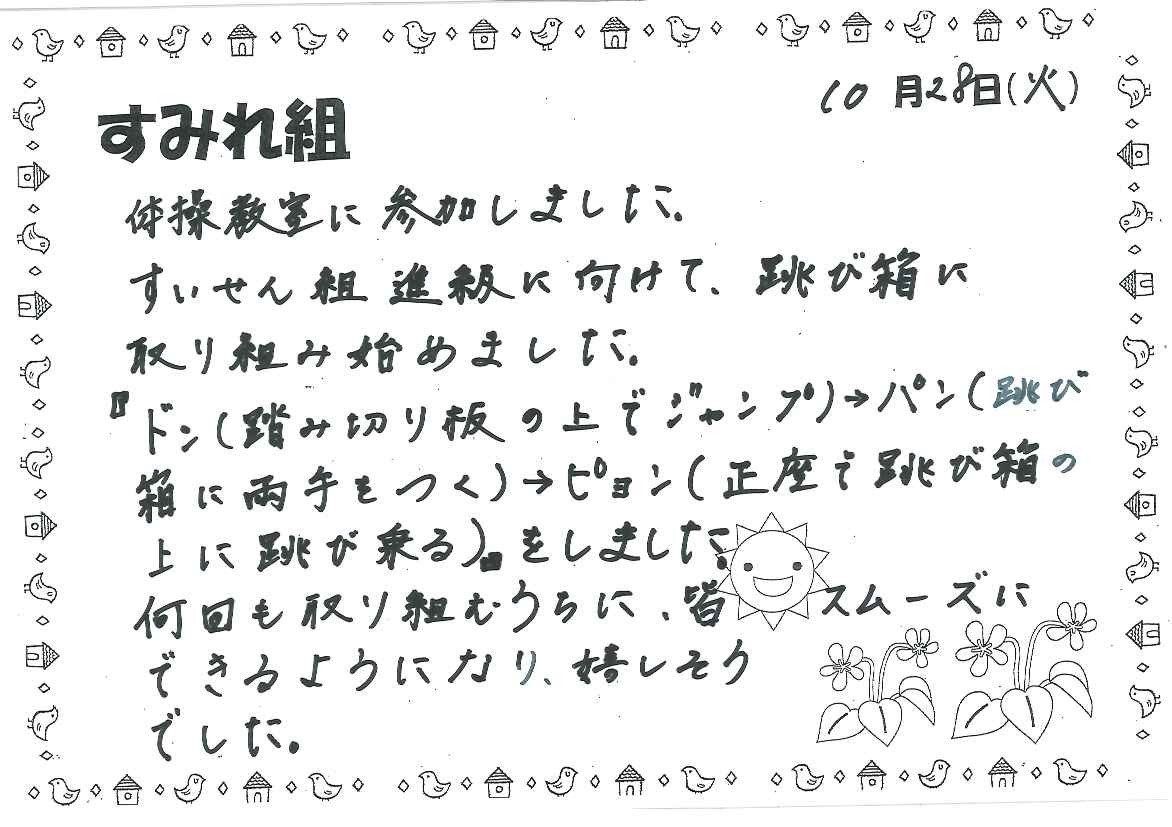 10月28日(火)
すみれ組
体操教室に参加しました。
すいせん組進級に向けて、跳び箱に
取り組み始めました。
『ドン(踏み切り板の上でジャンプ)→パン(跳び
箱に両手をつく)→ピョン(正座で跳び箱の
上に跳び乗る)』をしました。
何回も取り組むうちに、皆スムーズに
できるようになり、嬉しそう
でした。